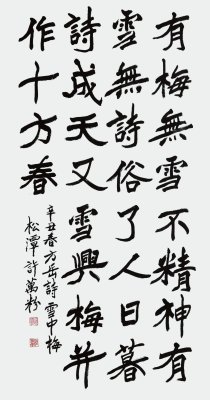 有梅無雪不精神有
雪無詩俗了人日暮
詩成天又雪與梅并
作十方春
辛丑春方岳詩雪中梅
松潭許萬粉